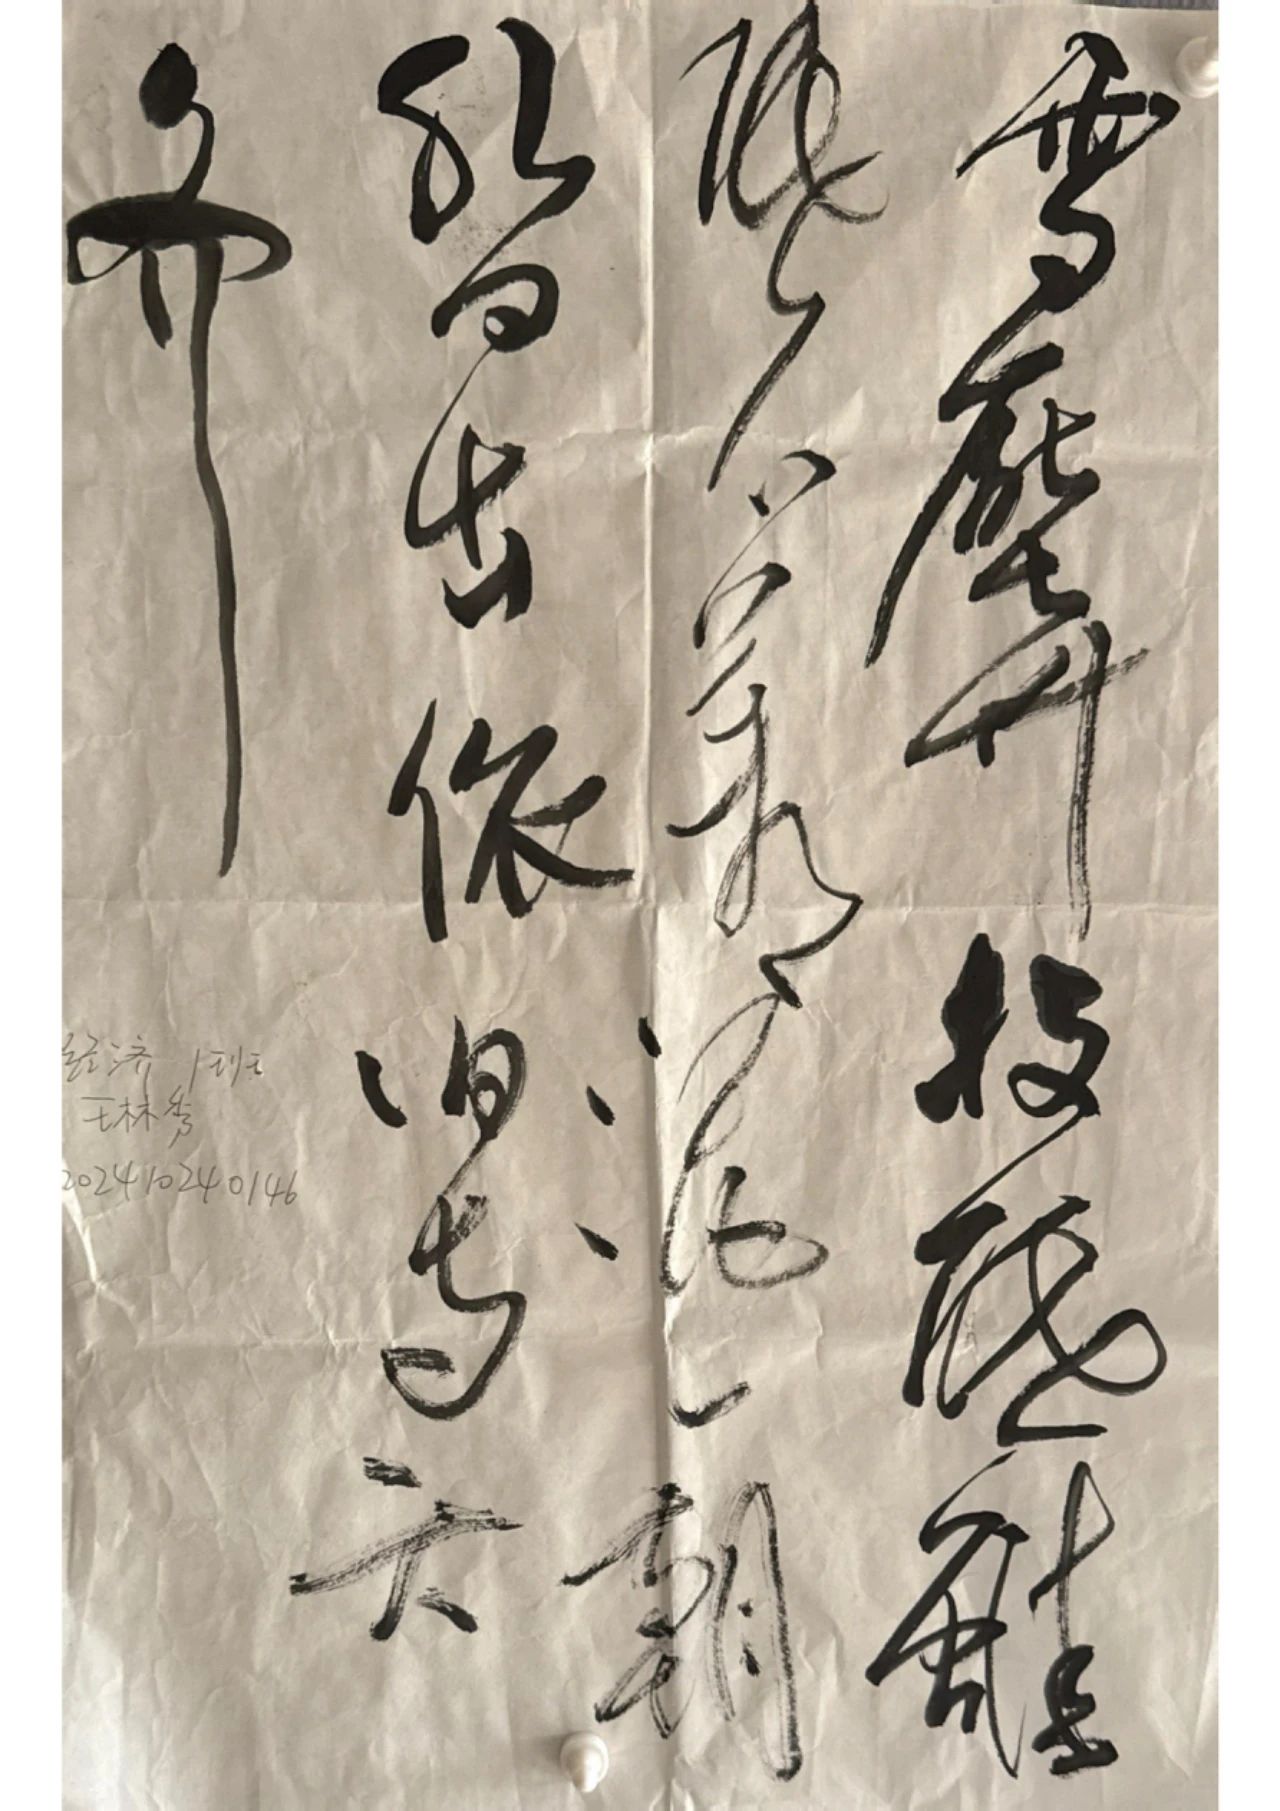 雪壓竹枝低雖
低不着泥一朝
紅日出依旧与天
齊
经济 1班
王林秀
202410240146